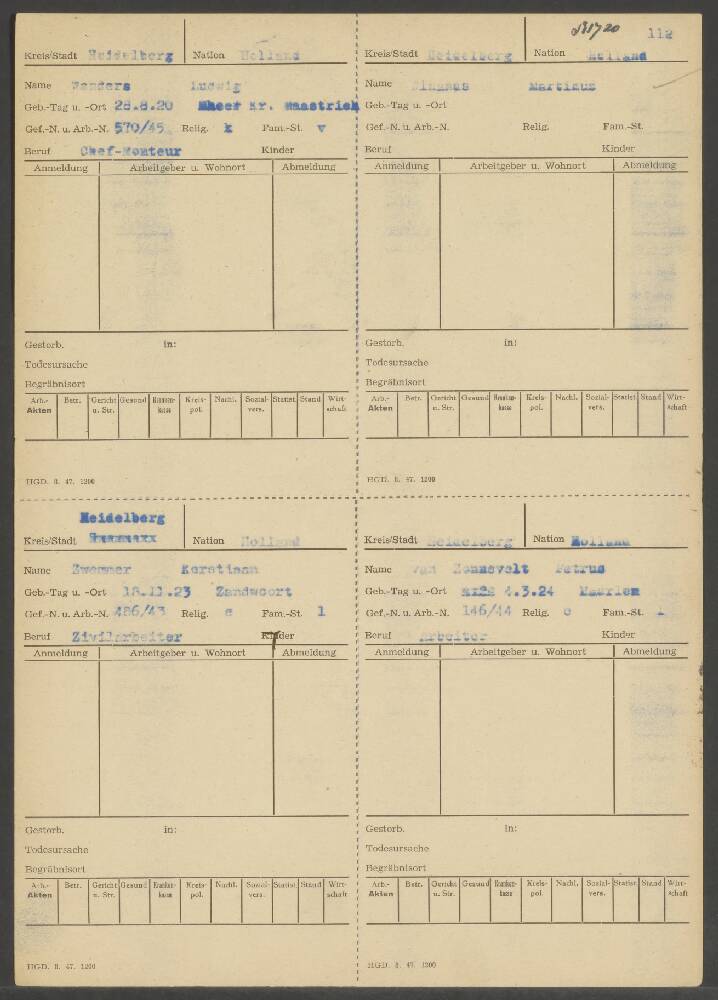 112
Kreis/Stadt Heidelberg Nation Holland
Name Wanders Ludwig
Geb.-Tag u. -Ort 28.8.20 Mheer Kr. Maastrich
Gef.-N. u. Arb.-N. 570/45 Relig. k Fam.-St. v
Beruf Chef-Monteur Kinder
Anmeldung Arbeitgeber u. Wohnort Abmeldung
Gestorb. in:
Todesursache
Begräbnisort
Arb.-Akten Betr. Gericht u. Str. Gesund Kranken-kasse Kreis-pol. Nachl. Sozial-vers. Statist. Stand Wirt-schaft
HGD. 8. 47. 1200
Kreis/Stadt Heidelberg Nation Holland
Name Martinus
Geb.-Tag u. -Ort
Gef.-N. u. Arb.-N. Relig. Fam.-St.
Beruf Kinder
Anmeldung Arbeitgeber u. Wohnort Abmeldung
Gestorb. in:
Todesursache
Begräbnisort
Arb.-Akten Betr. Gericht u. Str. Gesund Kranken-kasse Kreis-pol. Nachl. Sozial-vers. Statist. Stand Wirt-schaft
HGD. 8. 47. 1200
Heidelberg
Kreis/Stadt Nation Holland
Name Zwemmer Kerstiaan
Geb.-Tag u. -Ort 18.11.23 Zandwoort
Gef.-N. u. Arb.-N. 486/43 Relig. e Fam.-St. l
Beruf Zivilarbeiter Kinder
Anmeldung Arbeitgeber u. Wohnort Abmeldung
Gestorb. in:
Todesursache
Begräbnisort
Arb.-Akten Betr. Gericht u. Str. Gesund Kranken-kasse Kreis-pol. Nachl. Sozial-vers. Statist. Stand Wirt-schaft
HGD. 8. 47. 1200
Kreis/Stadt Heidelberg Nation Holland
Name van Zonnevelt Petrus
Geb.-Tag u. -Ort 4.3.24 Haarlem
Gef.-N. u. Arb.-N. 146/44 Relig. Fam.-St.
Beruf Arbeiter Kinder
Anmeldung Arbeitgeber u. Wohnort Abmeldung
Gestorb. in:
Todesursache
Begräbnisort
Arb.-Akten Betr. Gericht u. Str. Gesund Kranken-kasse Kreis-pol. Nachl. Sozial-vers. Statist. Stand Wirt-schaft
HGD. 8. 47. 1200